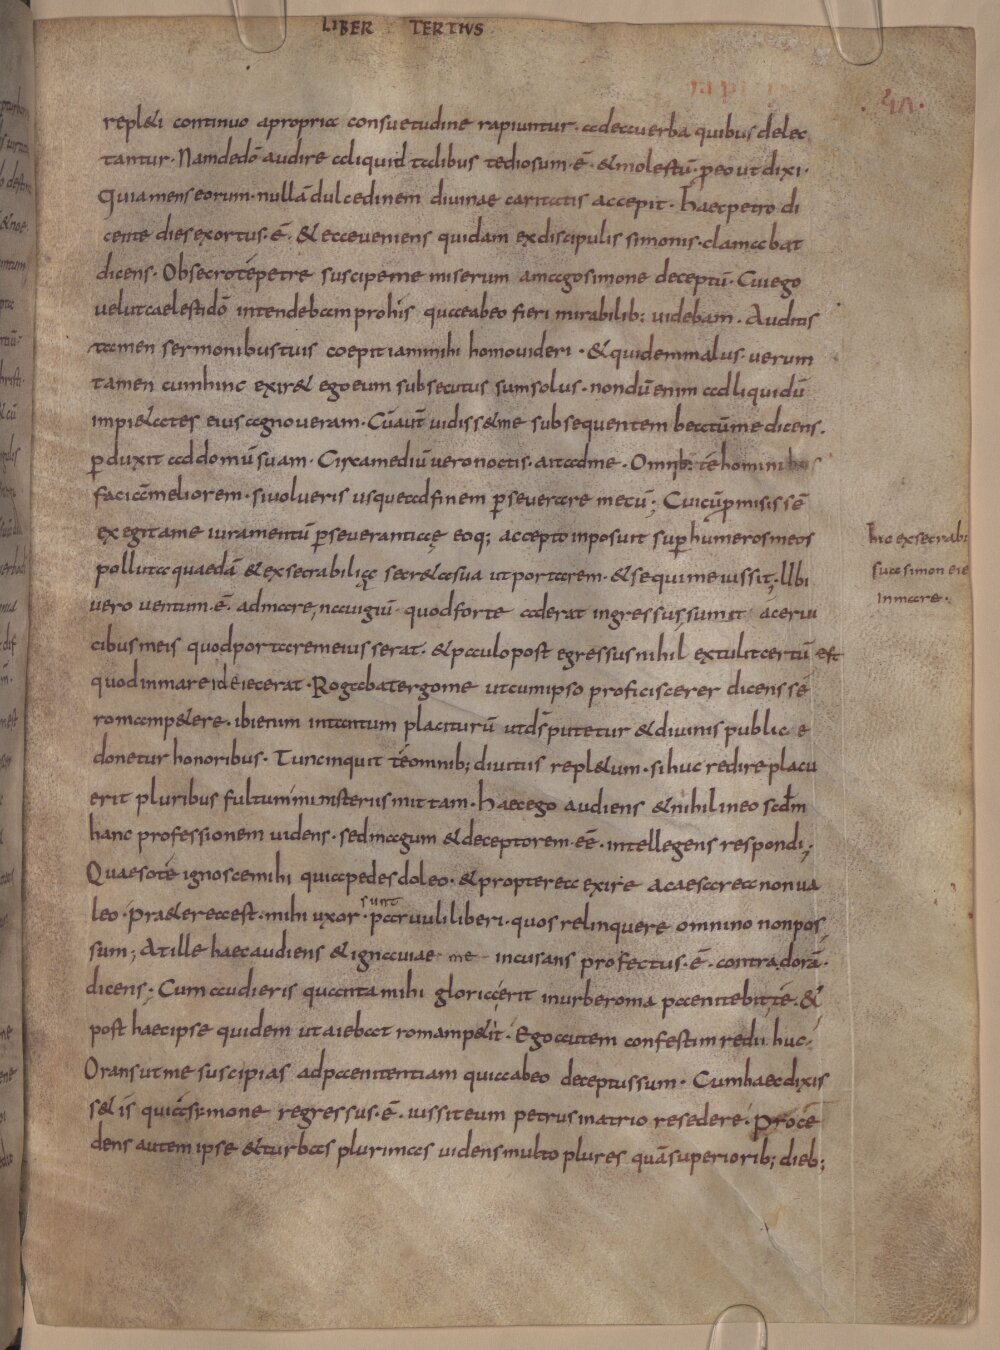 LIBER TERTIUS
repl&i continuo apropria consuetudine rapiuntur· addeauerba quibus delec
tantur· Namdedō audire aliquid talibus tediosum·ē· &molestū· ꝑeo ut dixi·
Quiamens eorum· nullā dulcedinem diuinae caritatis accepit· haecpetro di
cente dies exortus·ē· & ecceueniens quidam exdiscipulis simonis· clamabat
dicens· Obsecro tépetre suscipeme miserum amagosimone deceptū· Cui ego
velut caelestidō intendebam prohis quaeabeo fieri mirabilib: uidebam· Auditis
tamen sermonibus tuis coepit iammihi homouideri· & quidemmalus· uerum
tamen cumhinc exir& egoeum subsecutus sumsolus· nondū enim adliquidū
impi&ates eius agnoueram· Cūaut̄ uidiss&me subsequentem beatūme dicens·
ꝑduxit addomū suam· Circamediū uero noctis· aitadme· Omnib: té hominibus
faciā meliorem· siuolueris usqueadfinem ꝑseuerare mecū; Cuicūꝓmisissē
exegitame iuramentū ꝑseuerantiae eoq; accepto inposuit suꝑ humeros meos
polluta quaedā & exsecrabiliae secr&a sua ut portarem· & sequime iussit; Ubi
uero uentum·ē· admare, nauigiū quod forte aderat ingressus sumit aceruī
cibus meis quod portareme iusserat· & paulo post egressus nihil extulit certū est
quod inmare id eiecerat· Rogabat ergo me ut cum ipso proficiscerer dicens sé
romamp&ere· ibi eum intantum placiturū ut d̄s putetur & diuinis public e
donetur honoribus· Tunc inquit té omnib; diuitiis repl&um· si huc redire placu
erit pluribus fultum ministeriis mittam· haec ego audiens & nihil in eo scd̄m
hanc professionem uidens· sed magum & deceptorem·eē· intellegens respondi;
Quaeso té ignosce mihi quia pedes doleo· & propterea exire acaesarea non ua
leo· Pra&erea est· mihi uxor· sunt paruuli liberi· quos relinquere omnino non pos
sum; At ille haec audiens & ignauiae me incusans profectus·ē· contra dorā·
dicens; Cum audieris quanta mihi gloria erit in urbe roma paenitebit té· &
post haec ipse quidem ut aiebat romam p&it· Ego autem confestim redii huc·
Orans ut me suscipias ad paenitentiam quia abeo deceptus sum· Cum haec dixis
s& is qui a simone regressus·ē· iussit eum petrus in atrio resedere· Proce
dens autem ipse & turbas plurimas uidens multo plures quā superiorib; dieb;
hic exsecrabi
sua simon eie
in mare·